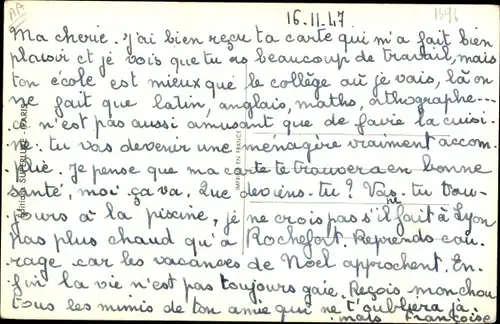 AA
16.11.47
1546
Ma cherie. J'ai bien reçu ta carte qui m'a fait bien
plaisir et je vois que tu as beaucoup de travail, mais
ton école est mieux que le collège où je vais, là on
ne fait que latin, anglais, maths, orthographe---
ce n'est pas aussi amusant que de faire la cuisi-
ne. tu vas devenir une ménagère vraiment accom-
plie. Je pense que ma carte te trouvera en bonne
santé, moi ça va. Que deviens-tu? Vas-tu tou-
jours à la piscine, je ne crois pas s'il fait à Lyon
ni
pas plus chaud qu'à Rochefort. Reprends cou-
rage car les vacances de Noël approchent. En-
fin la vie n'est pas toujours gaie. Reçois mon chou
tous les mimis de ton amie qui ne t'oubliera ja-
mais Françoise
Editions SUPERLUXE - PARIS
MADE IN FRANCE